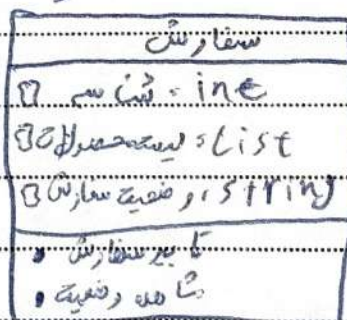 سفارش
شناسه : int
لیست محصولات : List
وضعیت سفارش : string
تایید سفارش
مشاهده وضعیت